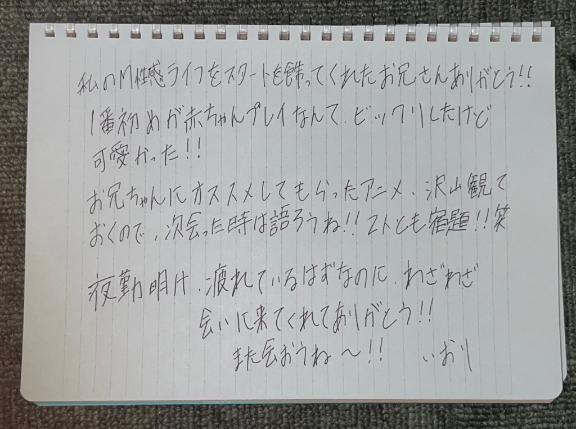 私のM性感ライフをスタートを飾ってくれたお兄さんありがとう!!
1番初めが赤ちゃんプレイなんて、ビックリしたけど
可愛かった!!
お兄ちゃんにオススメしてもらったアニメ、沢山観て
おくので、次会った時は語ろうね!! 2人とも宿題!!笑
夜勤明け、疲れているはずなのに、わざわざ
会いに来てくれてありがとう!!
また会おうね〜!! いおり